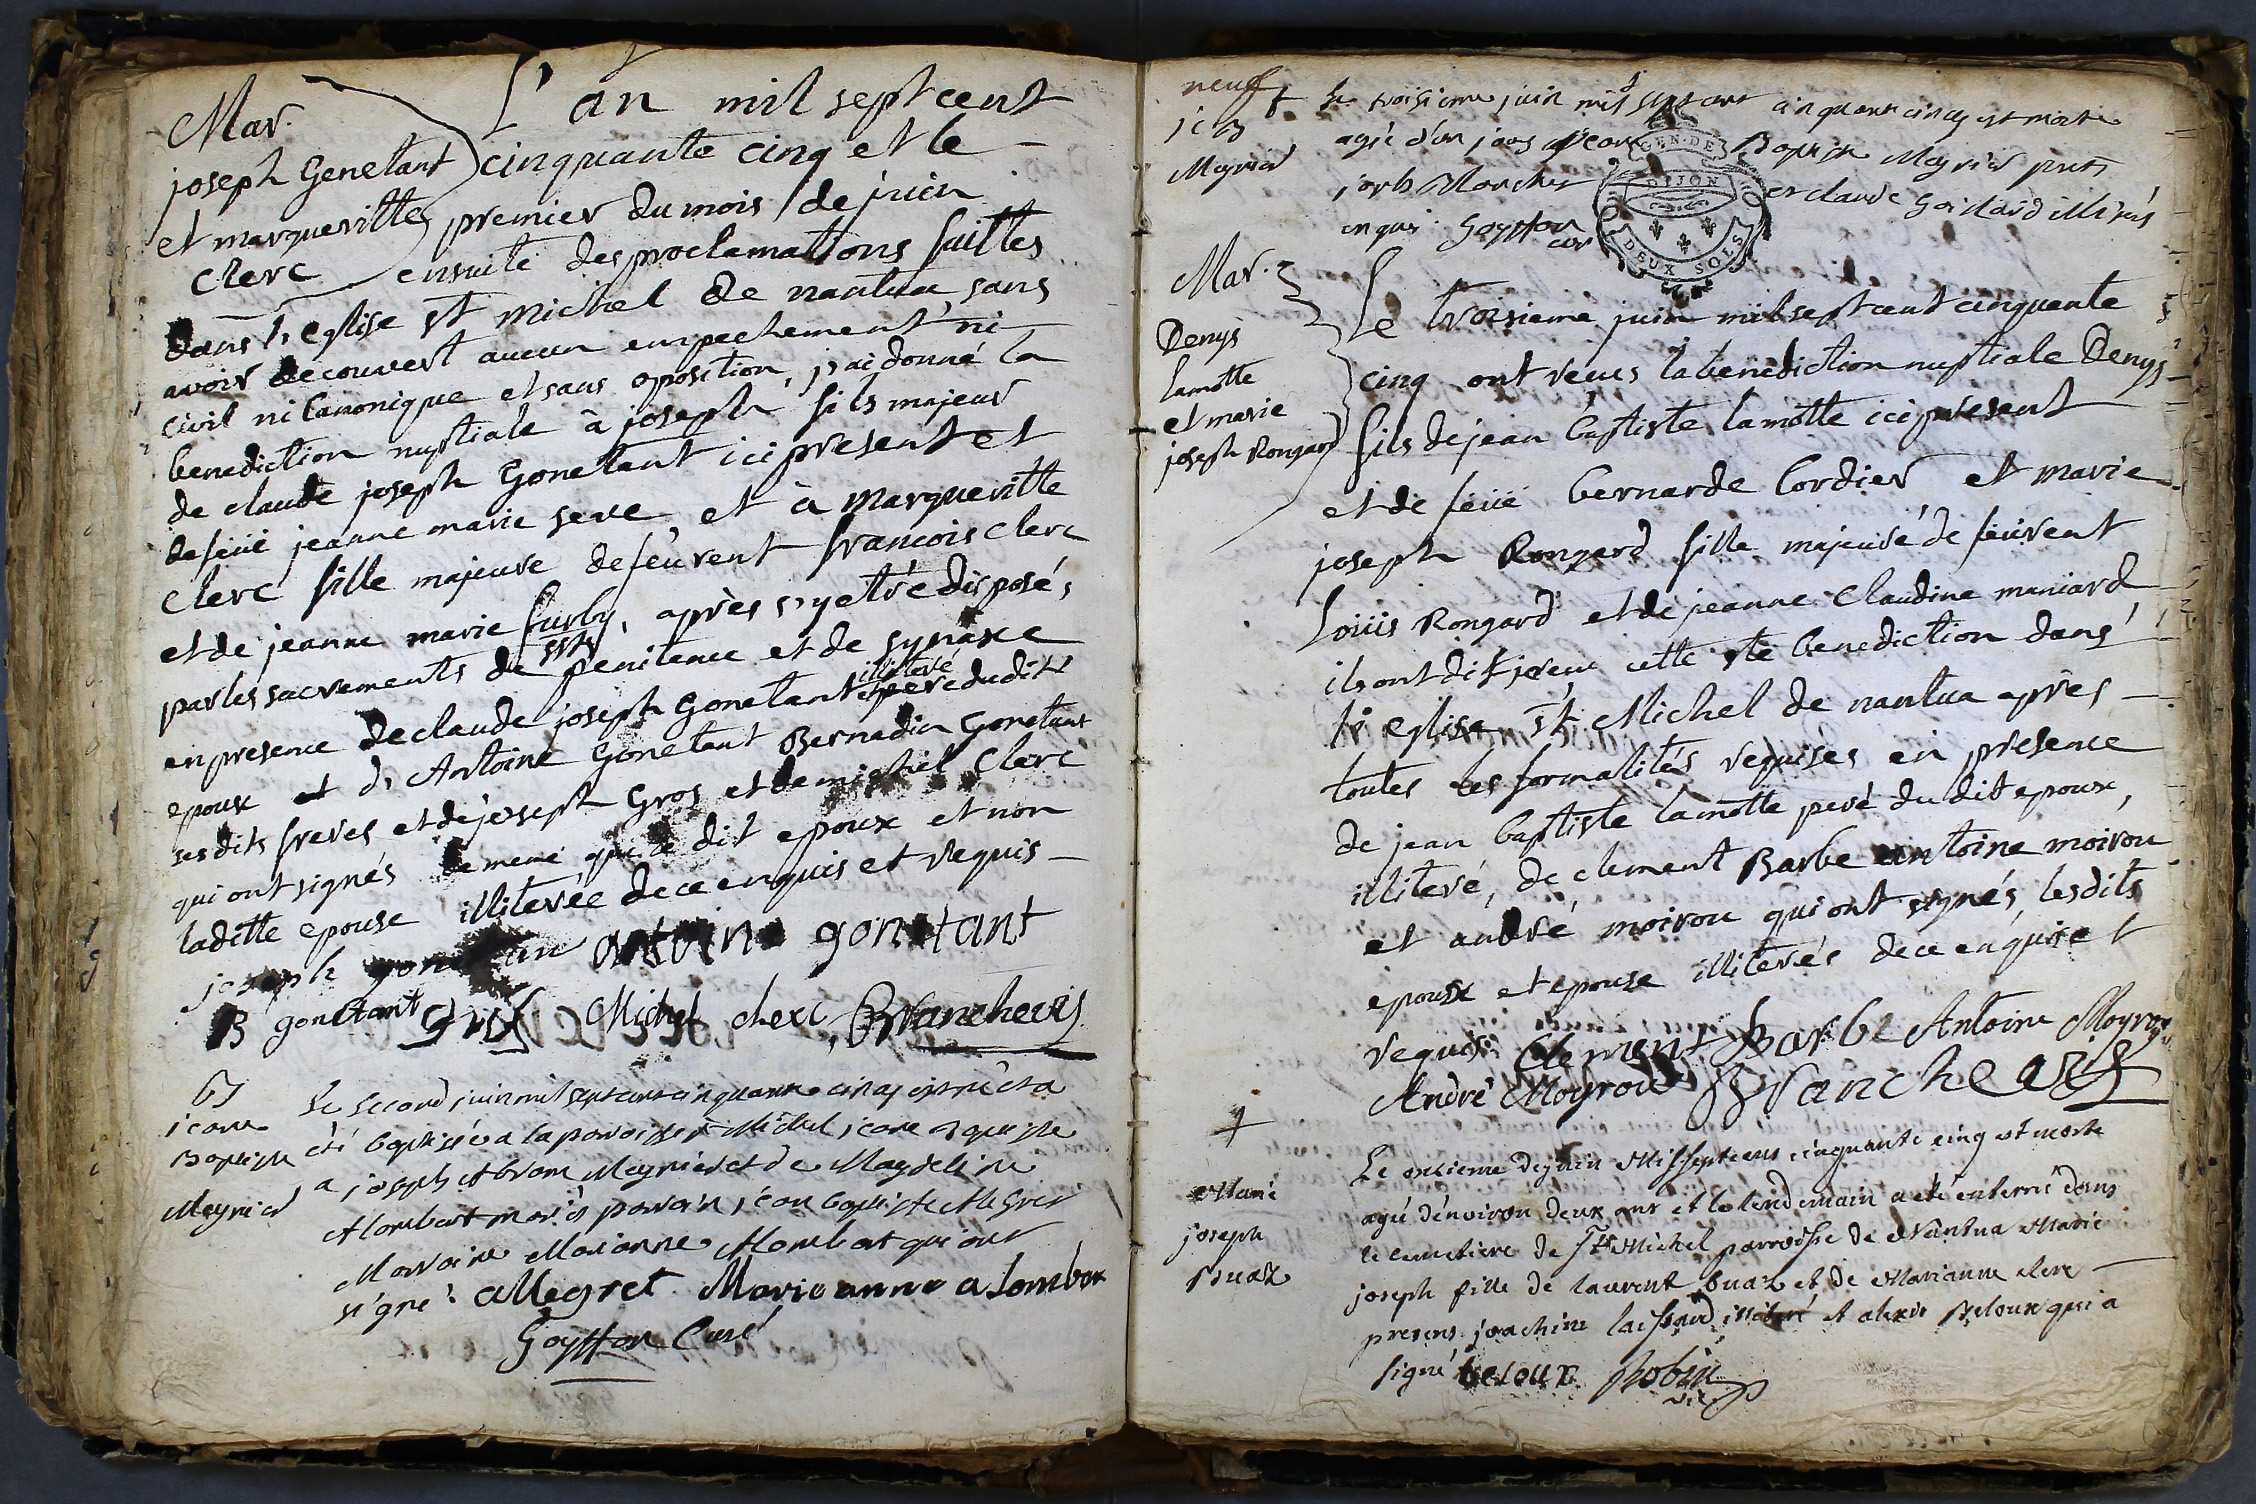 Mar.
joseph Gonetant
et margueritte
Clerc
L'an mil sept cent
cinquante cinq et le
premier du mois de juin
ensuite des proclamations faittes
dans l'eglise st michel de nantua, sans
avoir decouvert aucun empechement ni
civil ni Canonique et sans oposition, j'ai donné la
benediction nuptiale à joseph fils majeur
de claude joseph Gonetant ici present et
de feüe jeanne marie seve, et à margueritte
Clerc fille majeure de feu vent francois Clerc
et de jeanne marie furby, après s'y etre disposés
par les sacrements de penitence et de synaxe
en presence de claude joseph Gonetant illiteré pere dudit
epoux et d'Antoine Gonetant Bernadin Gonetant
ses dits freres et de joseph Gros et de michel Clerc
qui ont signés de meme que le dit epoux et non
laditte epouse illiterée de ce enquis et requis
joseph antoine gonetant
B gonetant Gros Michel clerc Brancheris
B
jean
Baptiste
Meynier
Le second juin mil sept cent cinquante cinq est né et a
été baptisé a la paroisse st Michel jean Baptiste
a joseph Abram Meynier et de Magdeleine
Alombert mariés parrain jean Baptiste Allegret
Marraine Marianne Alombert qui ont
signé. allegret Marie anne alombert
Goyffon Curé
neuf
Meynier
Le troisieme juin mil sept cent cinquante cinq est morte
agé d'un jour jean Baptiste Meynier
et claude Goillard illiterés
enquis Goyffon
curé
GEN. DE
DIJON
DEUX SOLS
Mar.
Denys
lamotte
et marie
joseph Rongard
Le troisieme juin mil sept cent cinquante
cinq ont recus la benediction nuptiale Denys
fils de jean baptiste lamotte ici present
et de feüe bernarde Cordier et marie
joseph Rongard fille majeure de feu vent
Loüis Rongard et de jeanne Claudine maniard
ils ont dit recue cette ste benediction dans
l'eglise st Michel de nantua après
toutes les formalités requises en presence
de jean baptiste lamotte peré du dit epoux,
illiteré, de clement Barbe antoine moirou
et andré moirou qui ont signés, lesdits
epoux et epouse illiterés de ce enquis et
requis Clement Barbe Antoine Moyrou
André Moyrou Brancheris
Marie
joseph
Buaz
Le onzieme de juin Mil sept cens cinquante cinq est morte
agé d'environ deux ans et le lendemain a eté enterré dans
le cimetiere de St Michel parroisse de Nantua Marie
joseph fille de laurent buaz et de Marianne clerc
presens joachim illiteré et alexis Beloux qui a
signé beloux Robin
vic.